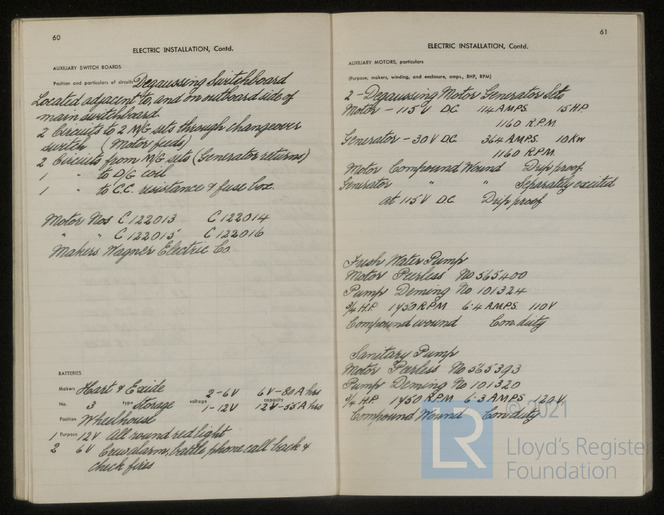 60
ELECTRIC INSTALLATION, Contd.
AUXILIARY SWITCH BOARDS
Position and particulars of circuits Degaussing Switchboard
Located adjacent to, and on outboard side of
main switchboard.
2 Circuits to 2 M/G sets through changeover
switch (Motor feeds)
2 Circuits from M/G sets (Generator returns)
1 " to D/G coil
1 " to C.C. resistance & fuse box.
Motor Nos C122013 C122014
" " C122015 C122016
Makers Wagner Electric Co.
BATTERIES
Makers Hart & Exide
No. 3 type Storage voltage 2-6V capacity 6V-80 A hrs
1-12V 12V-55 A hrs
Position Wheelhouse
Purpose 1 12V all round red light
2 6V Crew alarm, battle phone call back &
check fires
61
ELECTRIC INSTALLATION, Contd.
AUXILIARY MOTORS, particulars
(Purpose, makers, winding, and enclosure, amps., BHP, RPM)
2 - Degaussing Motor Generator Sets
Motor - 115V DC 114 AMPS. 15 H.P.
1160 R.P.M.
Generator - 30V DC 364 AMPS. 10 KW
1160 R.P.M.
Motor Compound Wound Drip proof
Generator " " Separately excited
at 115V DC Drip proof
Fresh Water Pump
Motor Peerless No 565400
Pump Deming No 101324
3/4 H.P. 1750 R.P.M. 6.4 AMPS. 110V
Compound wound Con. duty
Sanitary Pump
Motor Peerless No 565393
Pump Deming No 101320
3/4 H.P. 1750 R.P.M. 6.3 AMPS. 120V.
Compound Wound Con. duty
© 2021
LR
Lloyd's Register
Foundation